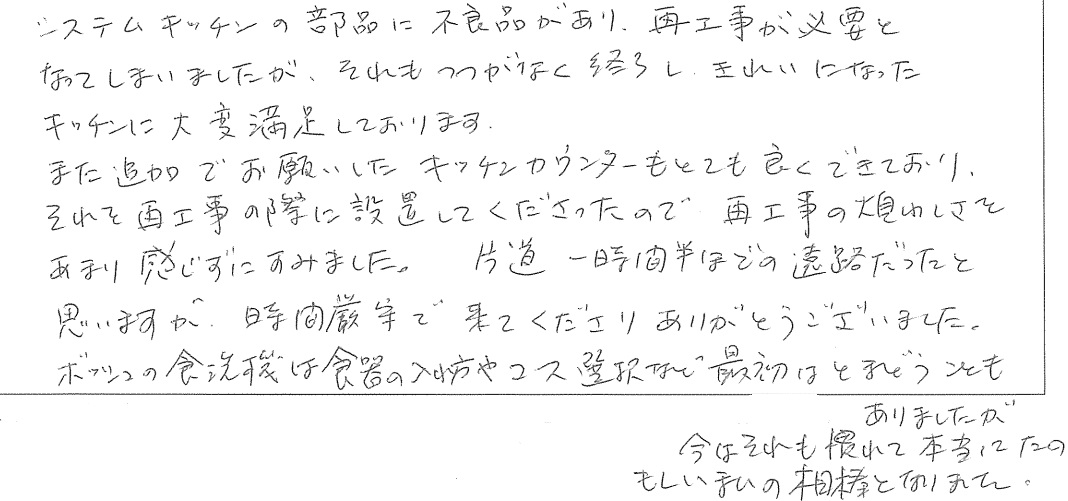 システムキッチンの部品に不良品があり、再工事が必要と
なってしまいましたが、それもつつがなく終了し、きれいになった
キッチンに大変満足しております。
また追加でお願いした キッチンカウンターもとても良くできており、
それを再工事の際に設置してくださったので、再工事の煩わしさを
あまり感じずにすみました。 片道 一時間半ほどの遠路だったと
思いますが、時間厳守で来てくださりありがとうございました。
ボッシュの食洗機は食器の入れ方やコース選択など最初はとまどうことも
ありましたが
今はそれも慣れて本当にたの
もしいまいの相棒となりました。